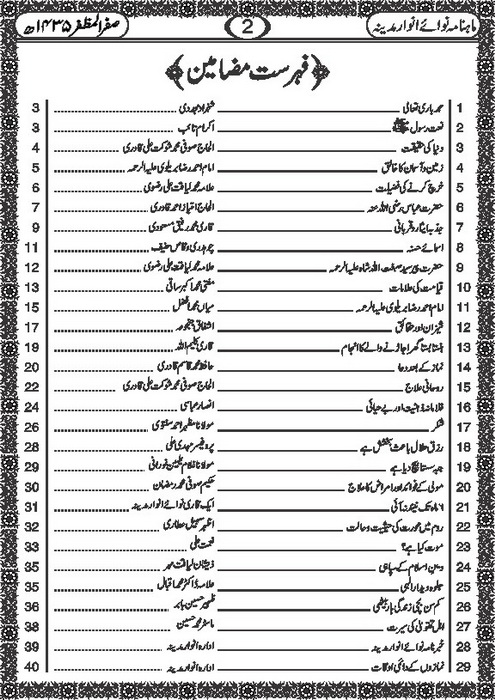 ماہنامہ نوائے انوار مدینہ 2 صفر المظفر ۱۴۳۵ھ
﴿فہرست مضامین﴾
1 حمد باری تعالیٰ شہزاد مجددی 3
2 نعت رسول ﷺ اکرام تائب 3
3 دنیا کی حقیقت الحاج صوفی محمد شوکت علی قادری 4
4 زمین و آسمان کا خالق امام احمد رضا بریلوی علیہ الرحمہ 5
5 خرچ کرنے کی فضیلت علامہ محمد لیاقت علی رضوی 6
6 حضرت عباس رضی اللہ عنہ الحاج امتیاز احمد قادری 7
7 جذبہ ایثار و قربانی قاری محمد رفیق مسعودی 9
8 اسمائے حسنہ چوہدری وقاص حنیف 11
9 حضرت پیر سید صبغت اللہ شاہ علیہ الرحمہ علامہ محمد لیاقت علی رضوی 12
10 قیامت کی علامات مفتی محمد اکبر ساقی 13
11 امام احمد رضا بریلوی علیہ الرحمہ میاں محمد افضل 15
12 شیزان اور حقائق اشفاق جنجوعہ 17
13 ہنستا بستا گھر اجاڑنے والے کا انجام قاری کلیم اللہ 19
14 نماز کے بعد دعا حافظ محمد قاسم قادری 20
15 روحانی علاج الحاج صوفی محمد شوکت علی قادری 22
16 غلامانہ ذہنیت اور بے حیائی انصار عباسی 24
17 شکر مولانا مظہر احمد سلفوی 26
18 رزق حلال باعث بخشش ہے پروفیسر مہدی علی 28
19 جہیز سنتا بچ دیا ہے مولانا غلام یٰسین نورانی 29
20 مولی کے فوائد اور امراض کا علاج حکیم صوفی محمد رمضان 30
21 ۱۸ ماہ تک نیند نہ آئی ایک قاری نوائے انوار مدینہ 31
22 روم میں عورت کی حیثیت و حالت اظہر سہیل عطاری 32
23 موت کیا ہے؟ نعمت علی 33
24 دین اسلام کے سپاہی ذیشان لیاقت مہر 35
25 جلوہ دیدار الٰہی علامہ ڈاکٹر محمد اقبال 35
26 کم سن بچی زندگی ہار بیٹھی ظہیر حسین بابر 36
27 اہل تقویٰ کی سیرت ماسٹر محمد حسین 38
28 خبرنامہ نوائے انوار مدینہ ادارہ انوار مدینہ 39
29 نمازوں کے دائمی اوقات ادارہ انوار مدینہ 40